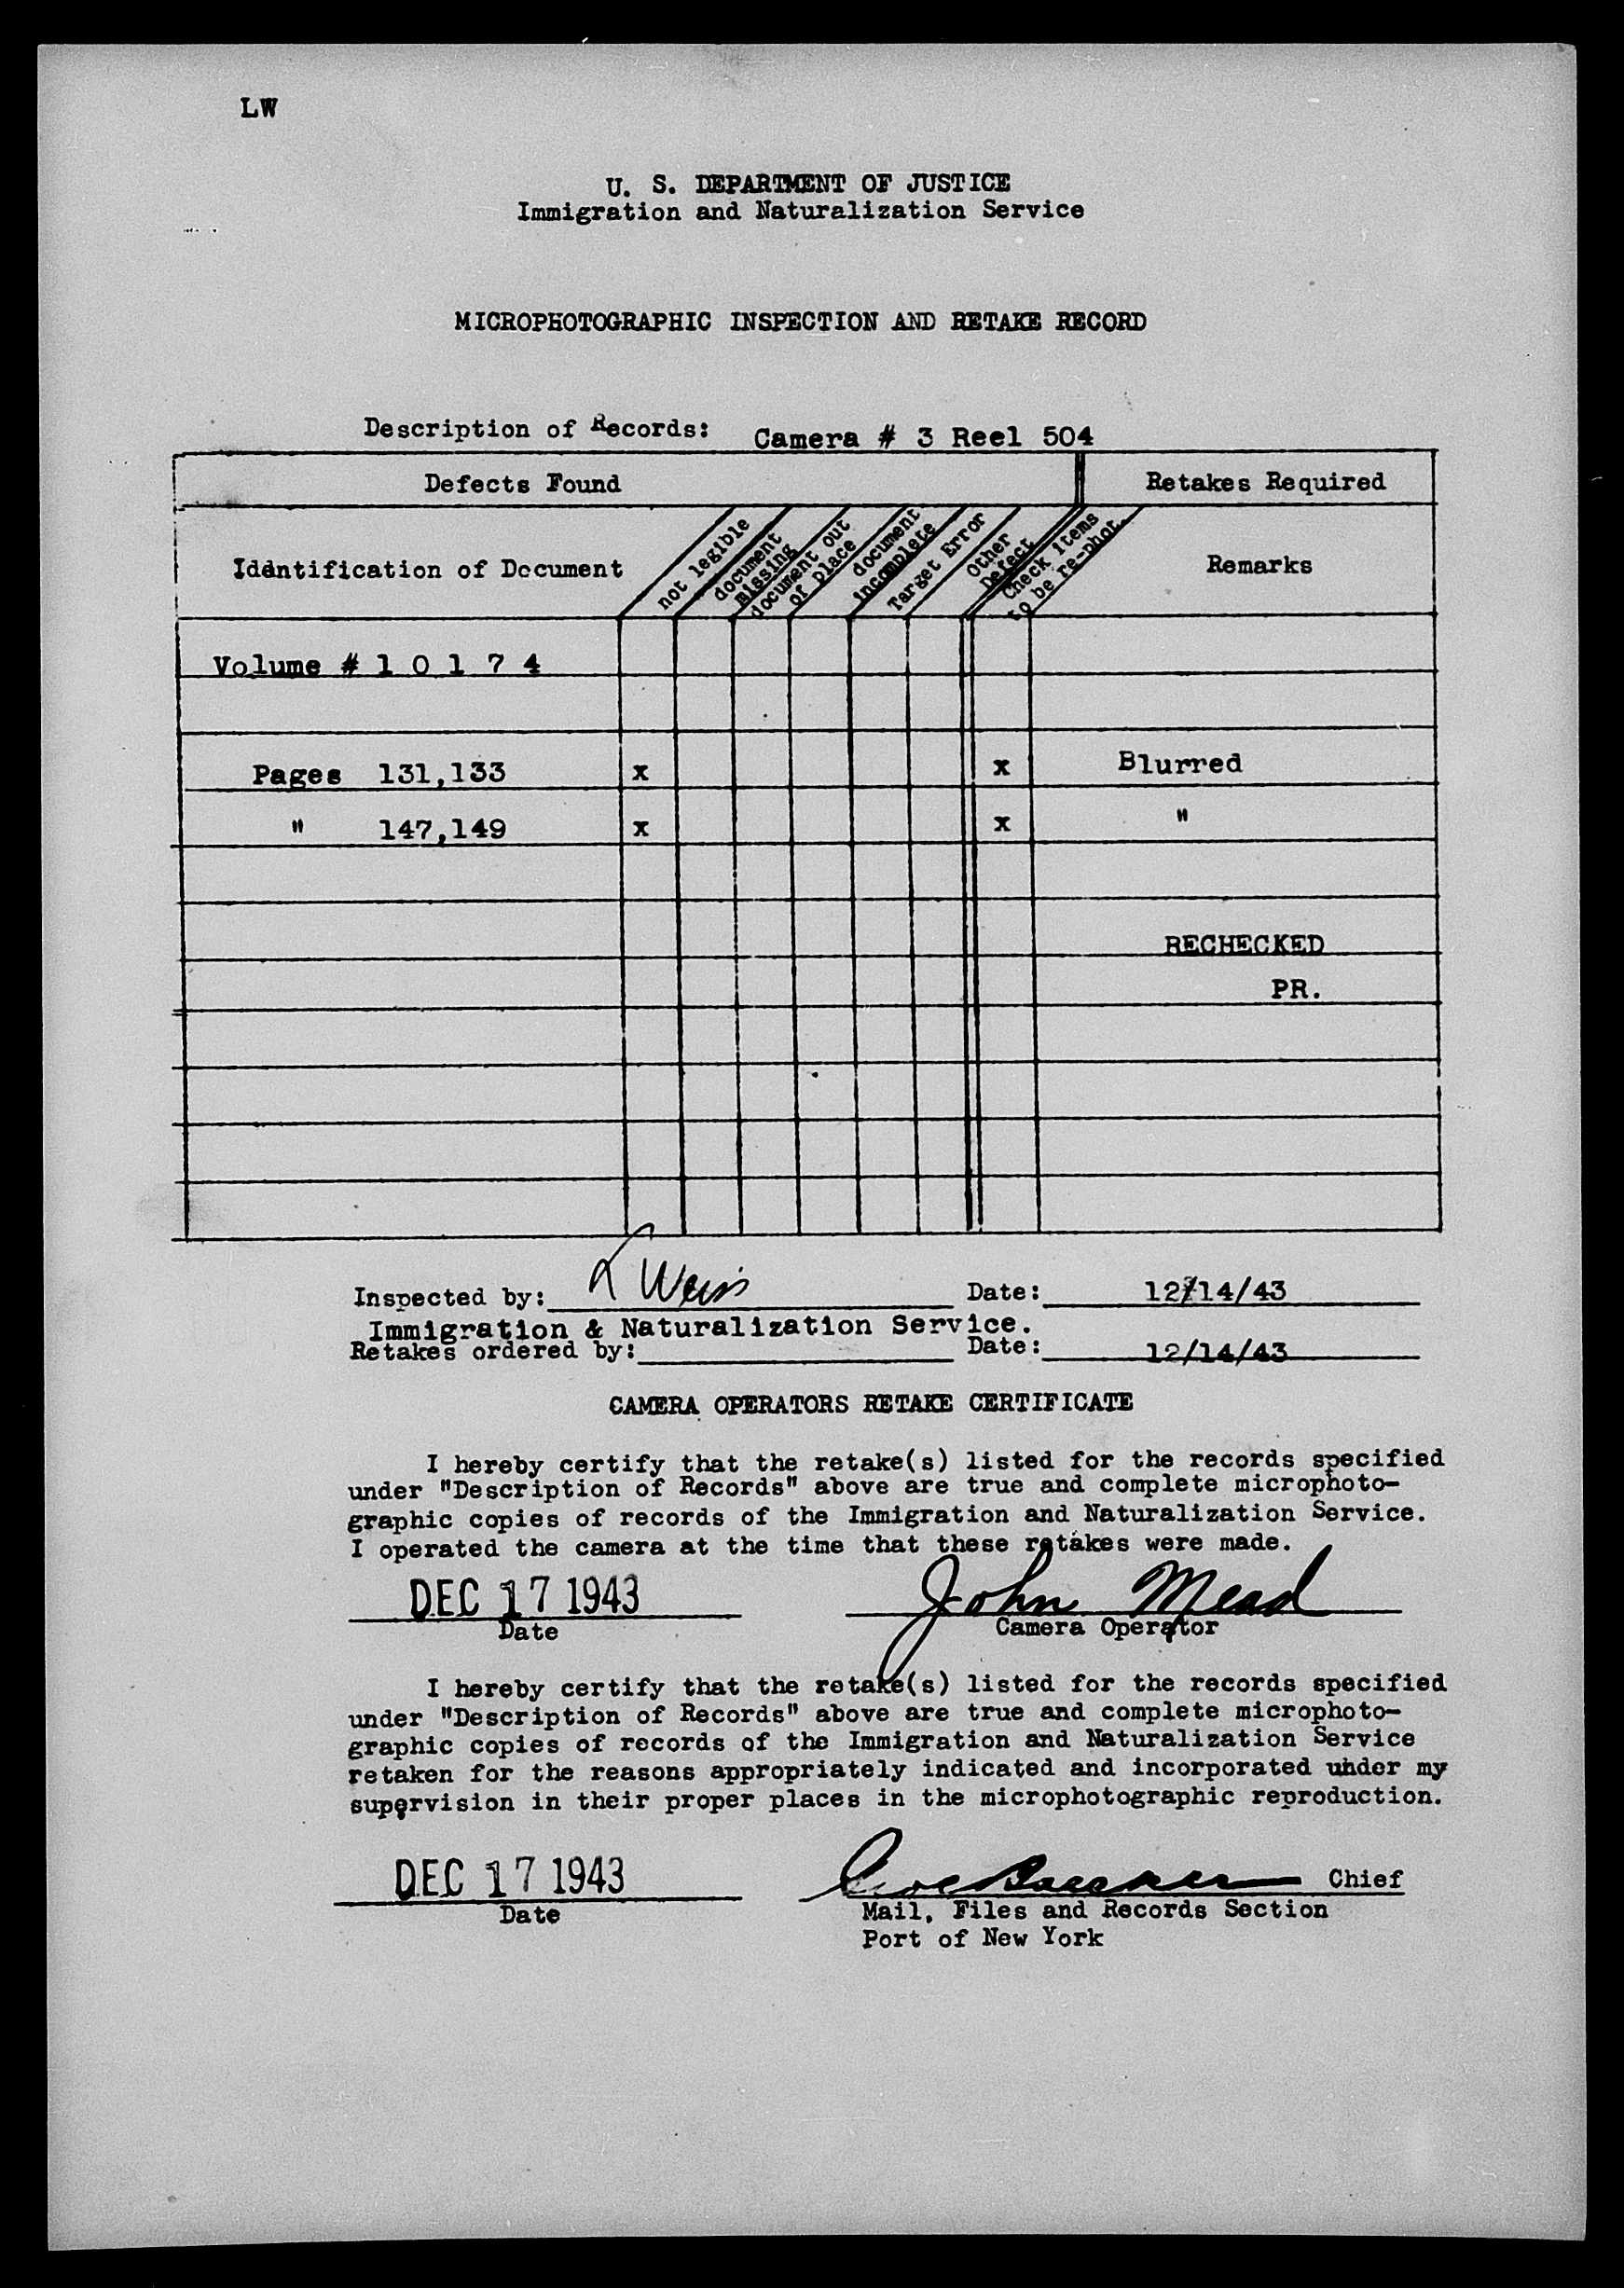 LW
U. S. DEPARTMENT OF JUSTICE
Immigration and Naturalization Service
MICROPHOTOGRAPHIC INSPECTION AND RETAKE RECORD
Description of Records: Camera # 3 Reel 504
Defects Found Retakes Required
Identification of Document
not legible
document
missing
document out
of place
document
incomplete
Target Error
Other
Defect
Check items
to be re-phot.
Remarks
Volume # 1 0 1 7 4
Pages 131,133 x x Blurred
" 147,149 x x "
RECHECKED
PR.
Inspected by: L Weiss Date: 12/14/43
Immigration & Naturalization Service.
Retakes ordered by: Date: 12/14/43
CAMERA OPERATORS RETAKE CERTIFICATE
I hereby certify that the retake(s) listed for the records specified
under "Description of Records" above are true and complete microphoto-
graphic copies of records of the Immigration and Naturalization Service.
I operated the camera at the time that these retakes were made.
DEC 17 1943 John Mead
Date Camera Operator
I hereby certify that the retake(s) listed for the records specified
under "Description of Records" above are true and complete microphoto-
graphic copies of records of the Immigration and Naturalization Service
retaken for the reasons appropriately indicated and incorporated under my
supervision in their proper places in the microphotographic reproduction.
DEC 17 1943 Chief
Date Mail, Files and Records Section
Port of New York